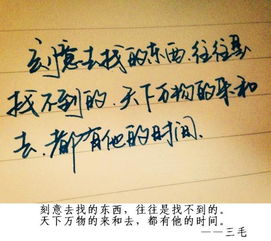 刻意去找的东西.往往是
找不到的.天下万物的来和
去.都有他的时间.
刻意去找的东西，往往是找不到的。
天下万物的来和去，都有他的时间。
——三毛